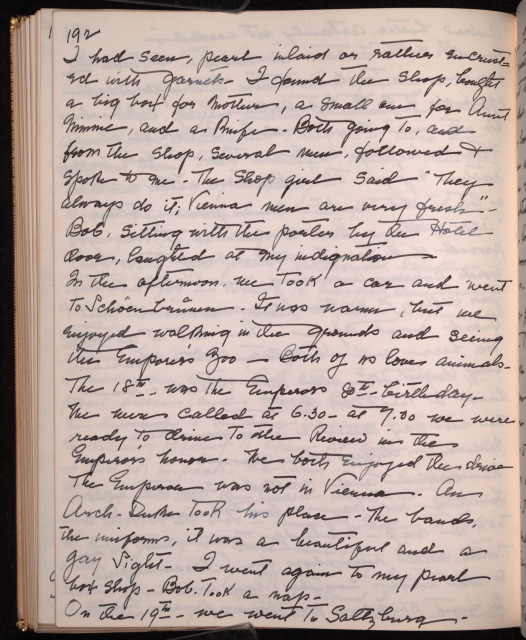 192
I had seen, pearl inlaid or rather encrust-
ed with garnets - I found the shop, bought
a big box for Mother, a small one for Aunt
Minnie, and a knife. Both going to, and
from the shop, several men, followed &
spoke to me - The shop girl said "They
always do it; Vienna men are very fresh" -
Bob, sitting with the porter by the Hotel
door, laughed at my indignation -
In the afternoon, we took a car and went
to Schöenbrünen - It was warm, but we
enjoyed walking in the grounds and seeing
the Emperors Zoo - Both of us love animals -
The 18th - was the Emperors 80th - birthday -
We were called at 6.30 - at 7.30 we were
ready to drive to the Review in the
Emperors honor - We both enjoyed the drive
The Emperor was not in Vienna - An
Arch-Duke took his place - The bands,
the uniforms, it was a beautiful and a
gay sight - I went again to my pearl
box shop - Bob took a nap -
On the 19th - we went to Saltzburg -